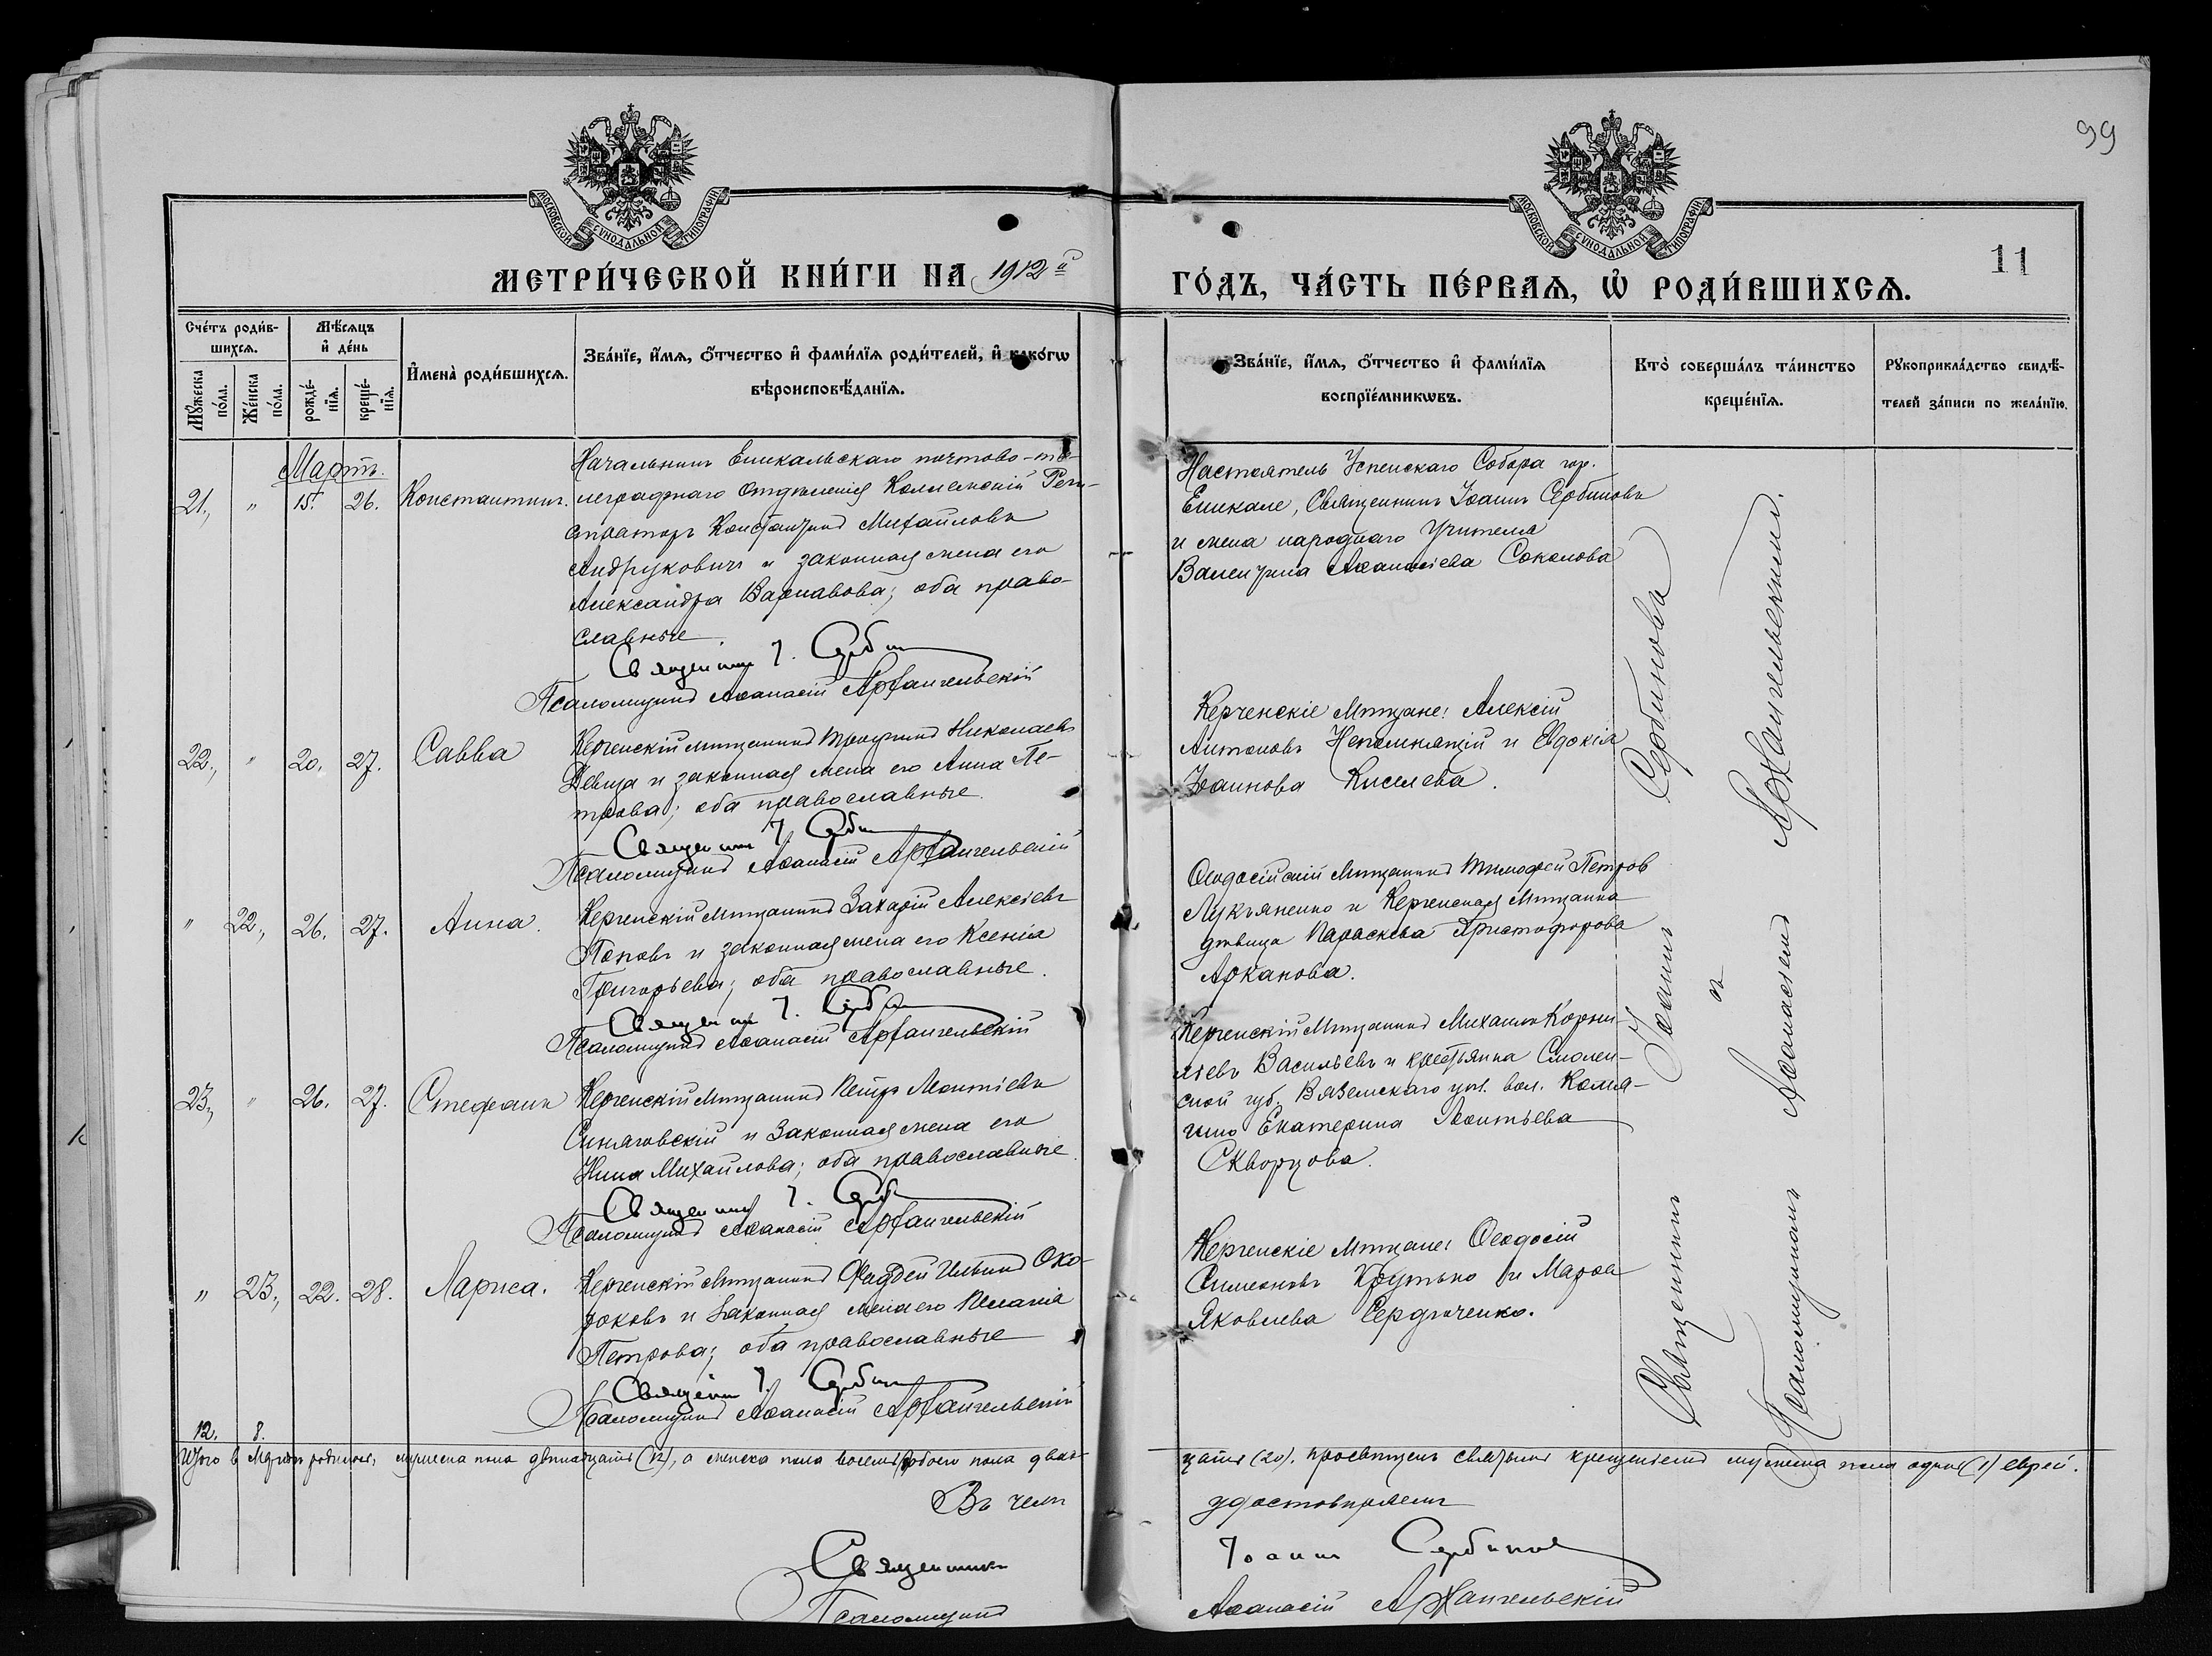 99
МОСКОВСКОЙ СѴНОДАЛЬНОЙ ТИПОГРАФІИ
МОСКОВСКОЙ СѴНОДАЛЬНОЙ ТИПОГРАФІИ
11
МЕТРИ́ЧЕСКОЙ КНИ́ГИ НА 1912й
ГО́ДЪ, ЧА́СТЬ ПЕ́РВАѦ, Ѡ҆ РОДИ́ВШИХСѦ.
Сче́тъ роди́в-
шихсѧ.
Мꙋ́жеска по́ла.
Же́нска по́ла.
Мѣ́сѧцъ
и҆ де́нь
рожде́-
нїѧ.
креще́-
нїѧ.
И҆мена̀ роди́вшихсѧ.
Зва́нїе, и҆́мѧ, ѻ҆́тчество и҆ фами́лїѧ роди́телей, и҆ како́гѡ
вѣроисповѣ́данїѧ.
Зва́нїе, и҆́мѧ, ѻ҆́тчество и҆ фами́лїѧ
воспрїе́мникѡвъ.
Кто̀ соверша́лъ та́инство
креще́нїѧ.
Рꙋкоприкла́дство свидѣ́-
телей за́писи по жела́нїю.
Мартъ.
21., " 15. 26. Константинъ.
Начальникъ Еникальскаго почтово-те-
леграфнаго отдѣленія Коллежскій Реги-
страторъ Константинъ Михайловъ
Андруковичъ и законная жена его
Александра Варнавова; оба право-
славные.
Священникъ І. Сербинъ
Псаломщикъ Аѳанасій Архангельскій
Настоятель Успенскаго Собора гор.
Еникале, Священникъ Іоаннъ Сербиновъ
и жена народнаго учителя
Валентина Аѳанасіева Соколова
22., " 20. 27. Савва
Керченскій мѣщанинъ Трофимъ Николаевъ
Девица и законная жена его Анна Пе-
трова; оба православные.
Священникъ І. Серби
Псаломщикъ Аѳанасій Архангельскій
Керченскіе Мѣщане: Алексій
Антоновъ Непомнящій и Евдокія
Іоаннова Киселева.
" 22., 26. 27. Анна.
Керченскій мѣщанинъ Захарій Алексіевъ
Поповъ и законная жена его Ксенія
Григорьева; оба православные.
Священникъ І. Серби
Псаломщикъ Аѳанасій Архангельскій
Ѳеодосійскій Мѣщанинъ Тимофей Петров
Лукъяненко и Керченская Мѣщанка
дѣвица Параскева Христофорова
Арканова.
23., " 26. 27. Стефанъ
Керченскій мѣщанинъ Петръ Леонтіевъ
Синяговскій и законная жена его
Нина Михайлова; оба православные.
Священникъ І. Серб
Псаломщикъ Аѳанасій Архангельскій
Керченскій Мѣщанинъ Михаилъ Корни-
ліевъ Васильевъ и крестьянка Смолен-
ской губ. Вяземскаго уѣз. вол.
Екатерина Леонтьева
Скворцова.
" 23., 22. 28. Лариса.
Керченскій Мѣщанинъ Фаддей Ильинъ Око-
роковъ и законная жена его Пелагія
Петрова; оба православные
Священникъ І. Сербин
Псаломщикъ Аѳанасій Архангельскій
Керченскіе Мѣщане: Ѳеодосій
Симеоновъ Крутько и Марѳа
Яковлева Сердюченко.
Священникъ Іоаннъ Сербиновъ
и
Псаломщикомъ Аѳанасіемъ Архангельскимъ.
12. 8.
Итого в Мартѣ родилось, мужеска пола двѣнадцать (12), а женска пола восемь, обоего пола двад-
цать (20). Просвѣщенъ святымъ крещеніемъ мужеска пола одинъ (1) еврей.
Въ чемъ
удостовѣряемъ
Священникъ
Іоаннъ Сербиновъ
Псаломщикъ
Аѳанасій Архангельскій